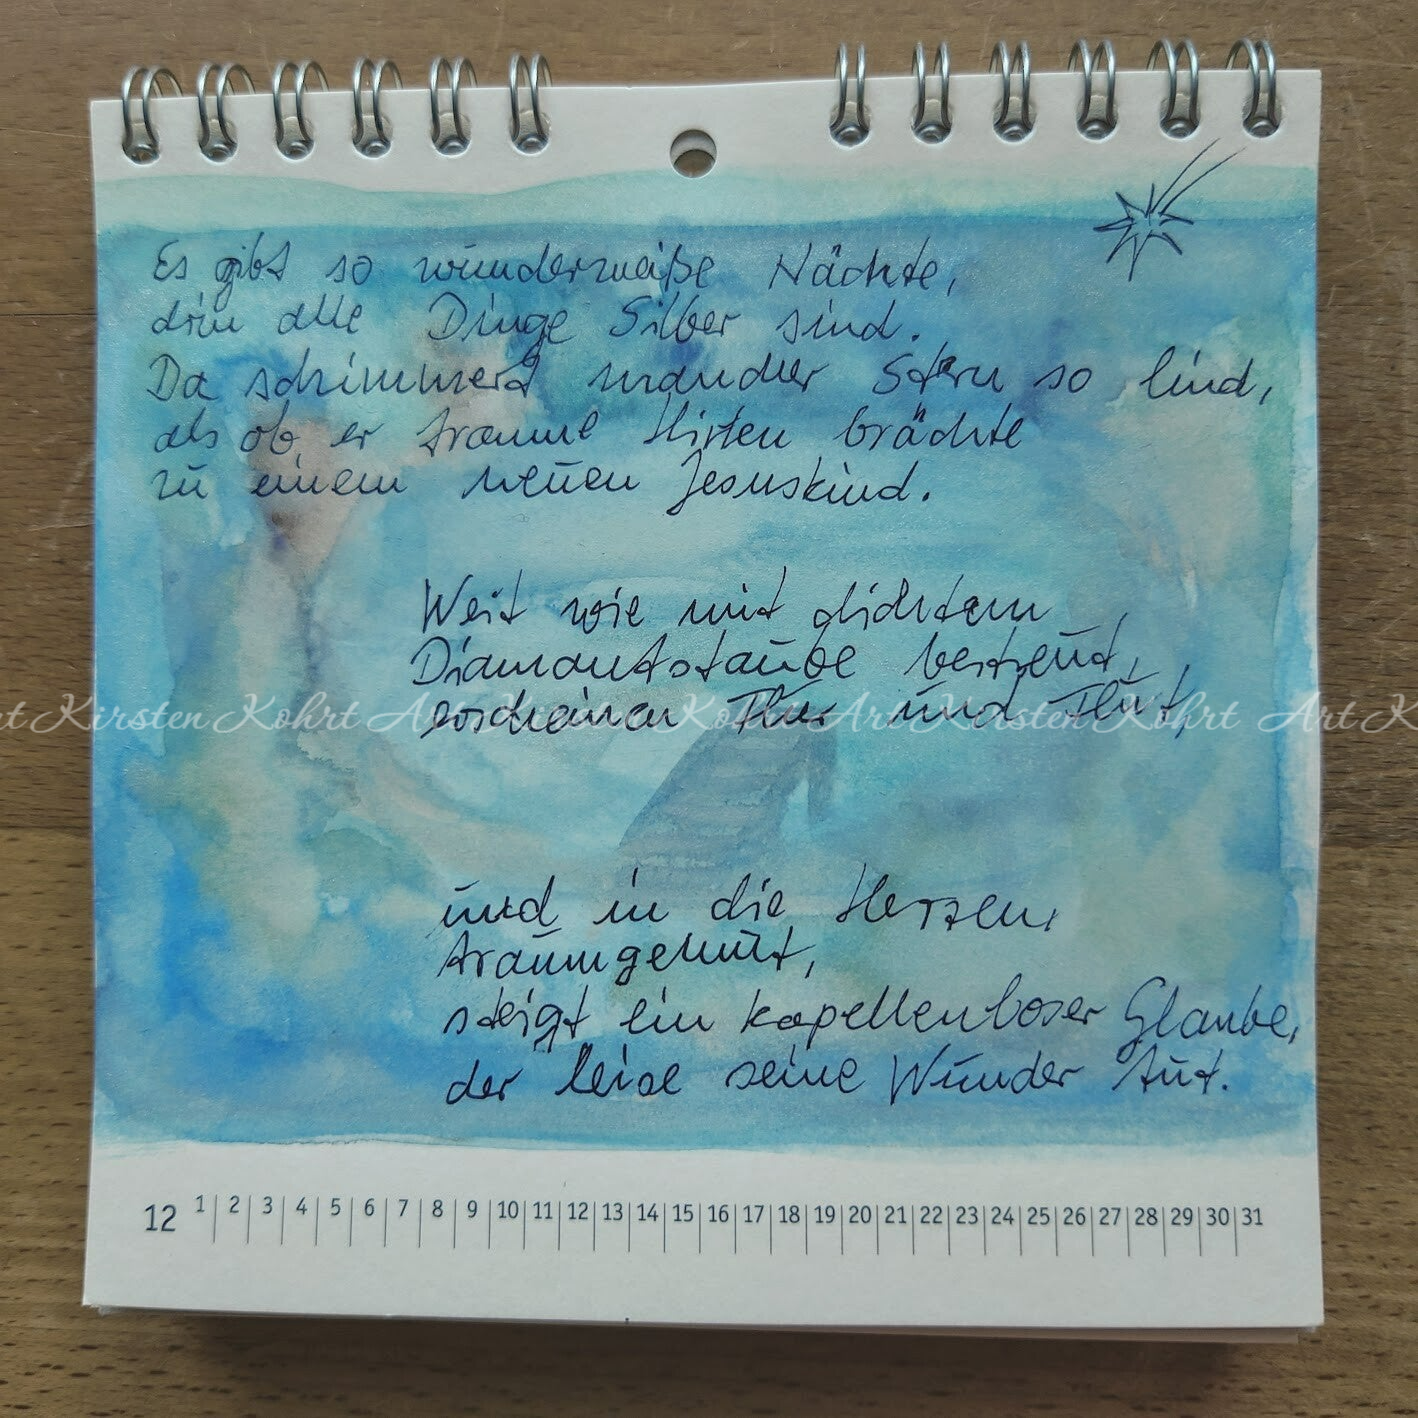 Es gibt so wunderweiße Nächte,
drin alle Dinge Silber sind.
Da schimmert mancher Stern so lind,
als ob er fromme Hirten brächte
zu einem neuen Jesuskind.
Weit wie mit dichtem
Diamantstaube bestreut,
erscheinen Flur und Flut,
Art Kirsten Kohrt Art Kirsten Kohrt Art Kirsten Kohrt Art K
und in die Herzen,
traumgemut,
steigt ein kapellenloser Glaube,
der leise seine Wunder tut.
12 1 2 3 4 5 6 7 8 9 10 11 12 13 14 15 16 17 18 19 20 21 22 23 24 25 26 27 28 29 30 31